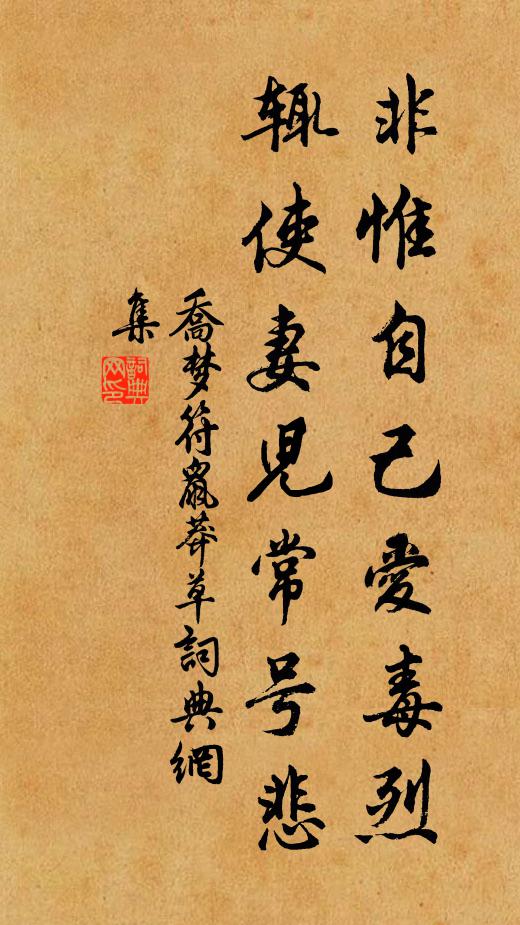 非惟自己愛毒烈
輒使妻児常号悲
喬梦符鼠莽草詞典網
集
詞典
网印